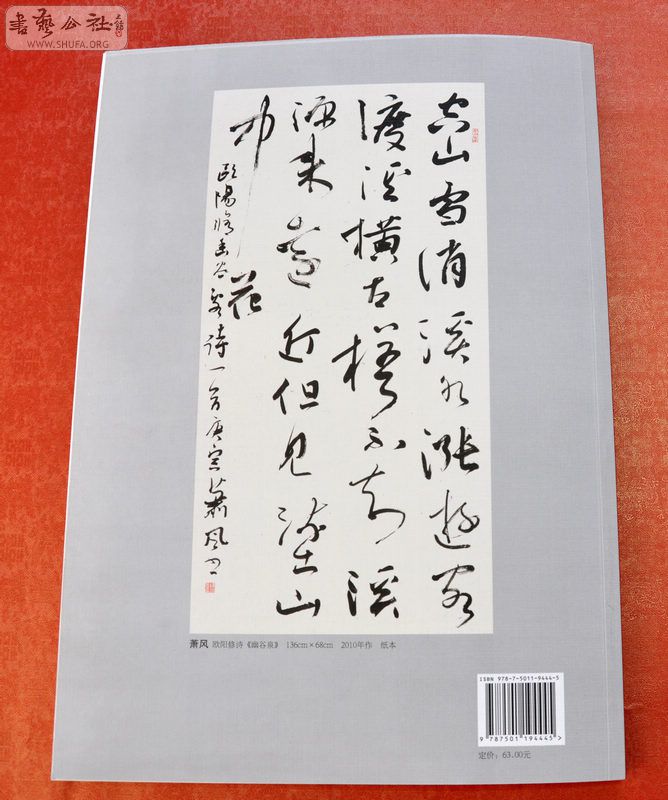 書藝公社
WWW.SHUFA.ORG
空山雪消溪水漲遊客
渡溪橫古槎不知溪
源來遠近但見流出山
中花
歐陽脩幽谷泉詩一首庚寅蕭風書
萧风 欧阳修诗《幽谷泉》 136cm×68cm 2010年作 纸本
ISBN 978-7-5011-9444-5
9 787501 194445 >
定价：63.00元